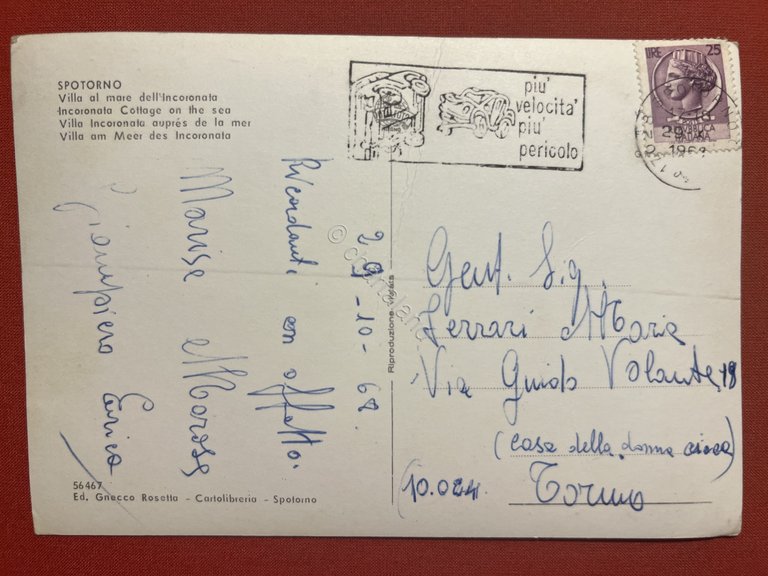 SPOTORNO
Villa al mare dell'Incoronata
Incoronata Cottage on the sea
Villa Incoronata auprés de la mer
Villa am Meer des Incoronata
più
velocità
più
pericolo
LIRE 25
29
29-10-68
Ricordanti con affetto.
Marisa
Giampiero Enrico
Riproduzione vietata
Gent. Sig.
Ferrari Maria
Via Guido Volante, 18
(casa della donna cieca)
(10.024) Torino
56467
Ed. Gnecco Rosetta - Cartolibreria - Spotorno